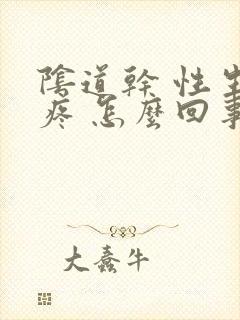 陰道幹 性生
疼 怎麼回事
大蠢牛